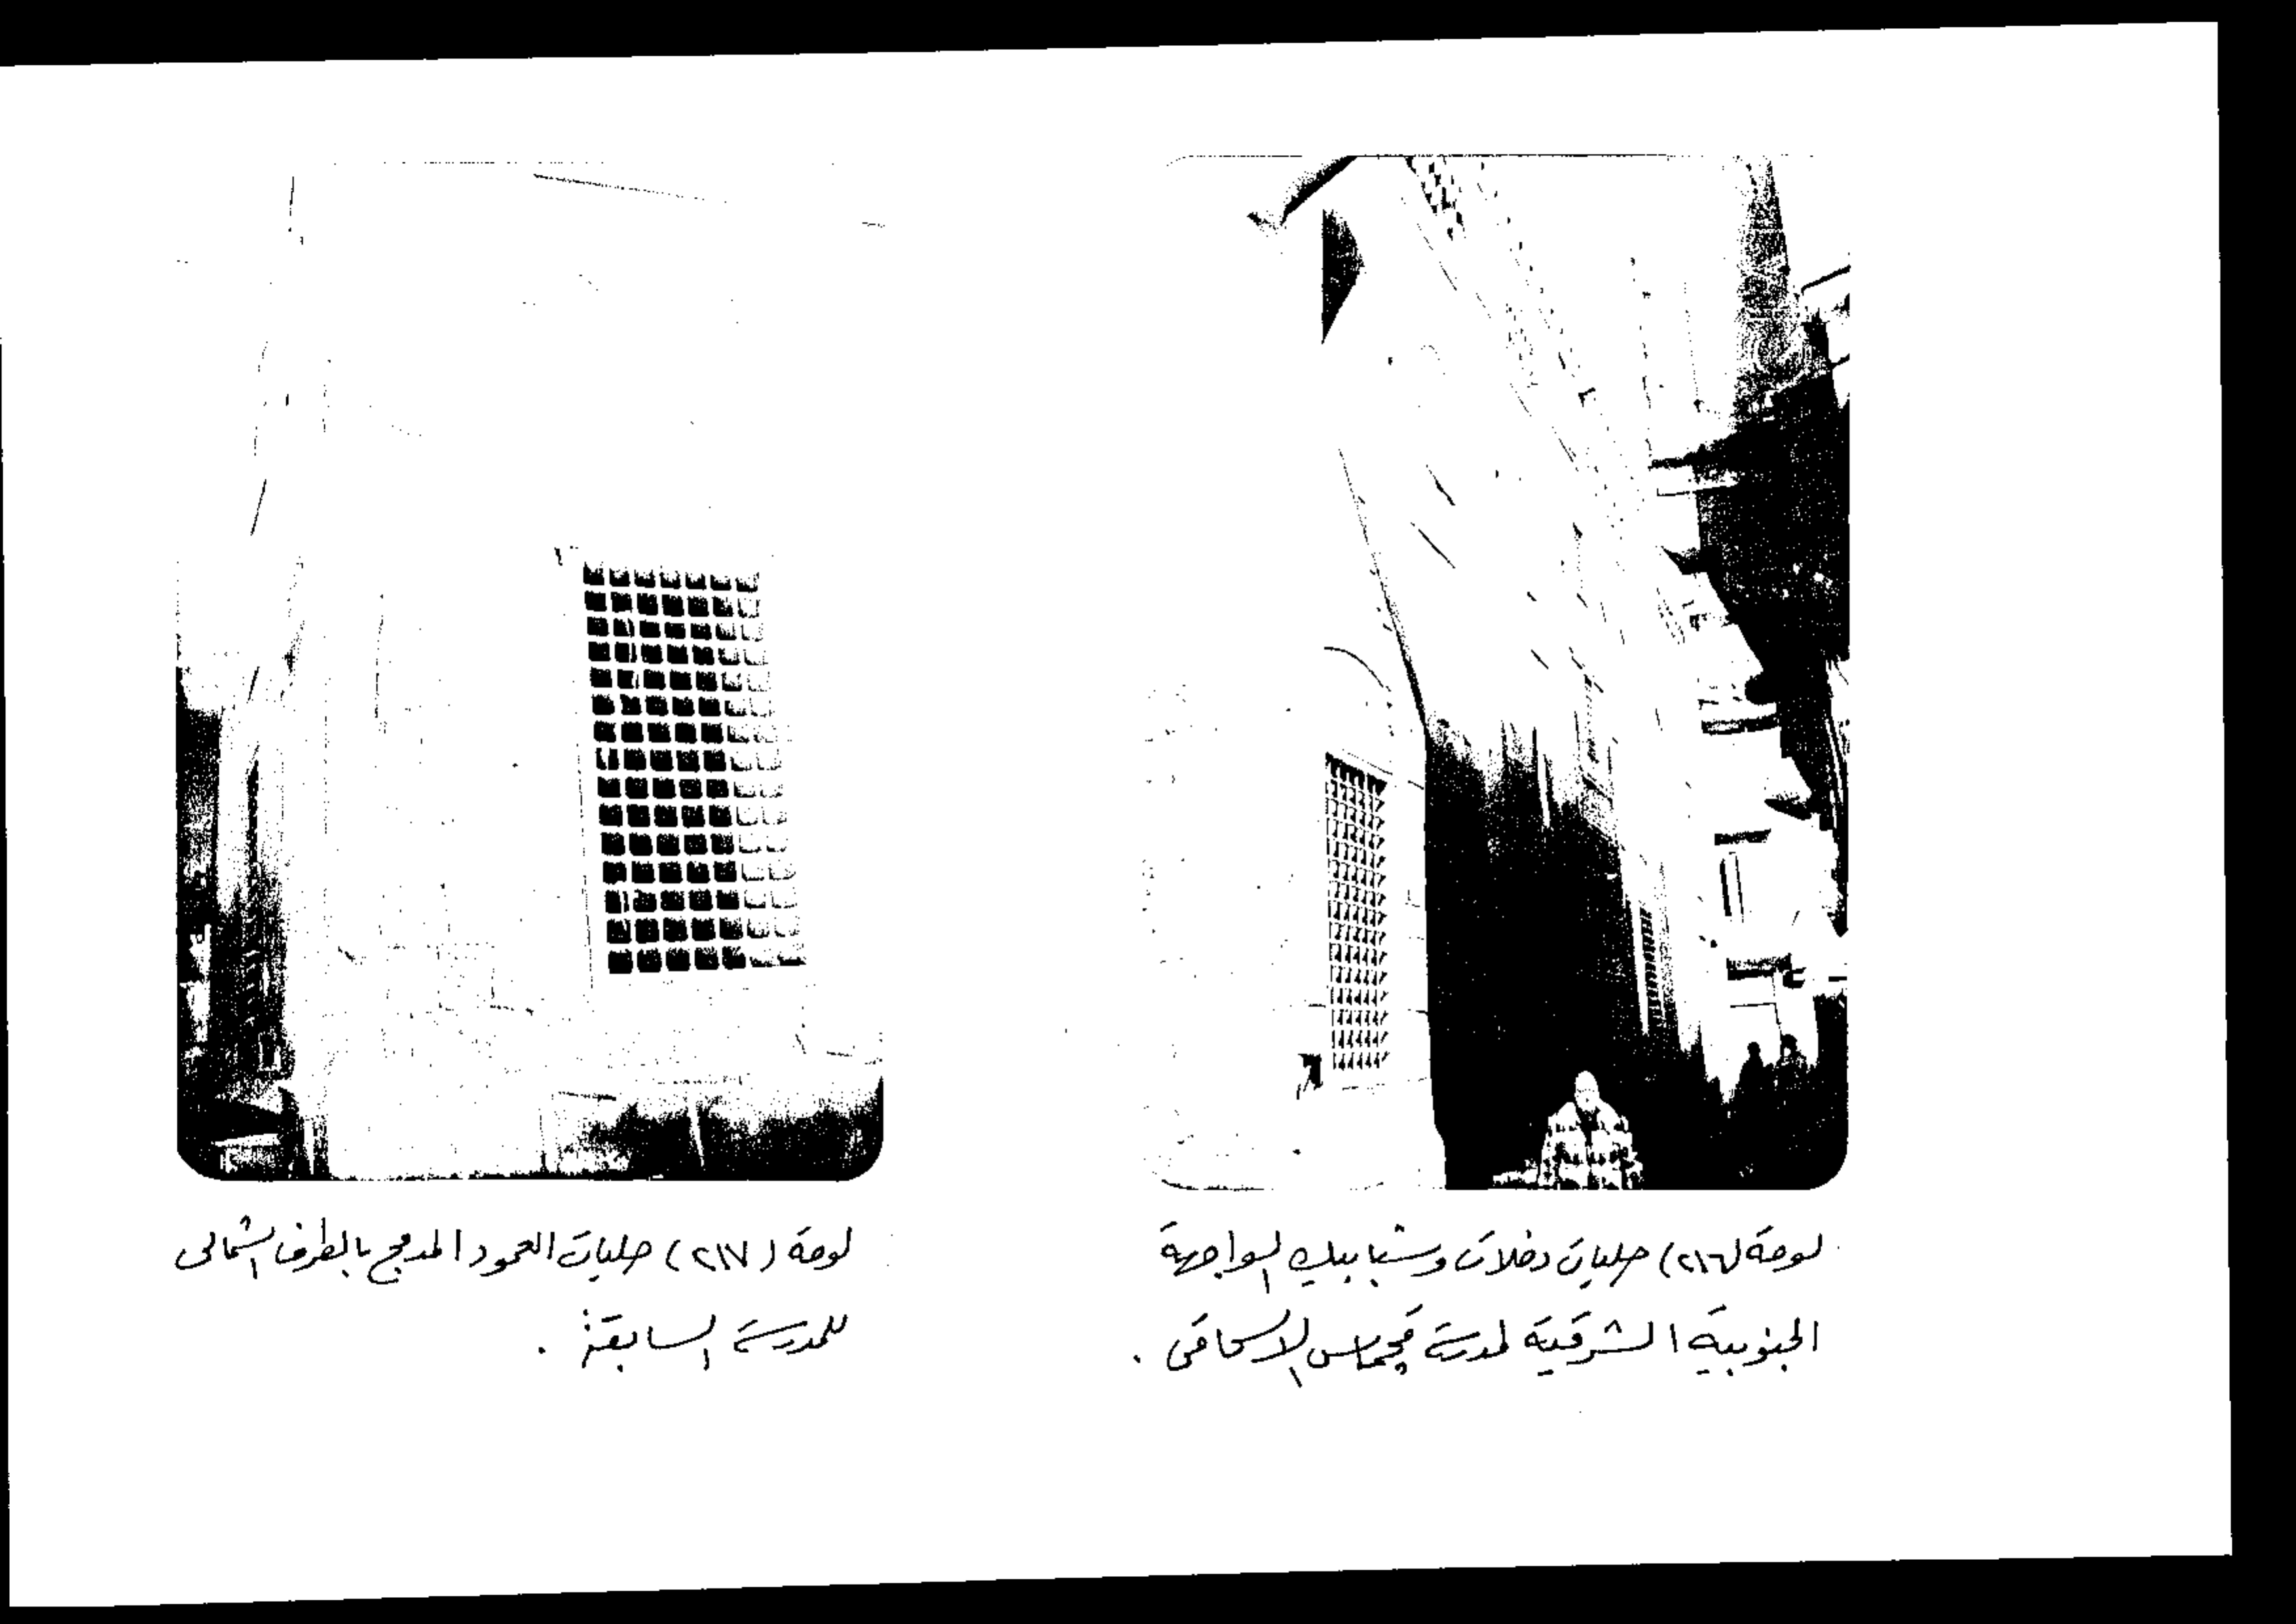 لوحة (٢١٦) حليات دخلات وشبابيك الواجهة
الجنوبية الشرقية لمدرسة قجماس الاسحاقى .
لوحة (٢١٧) حليات العمود المدمج بالطرف الشمالى
للمدرسة السابقة .